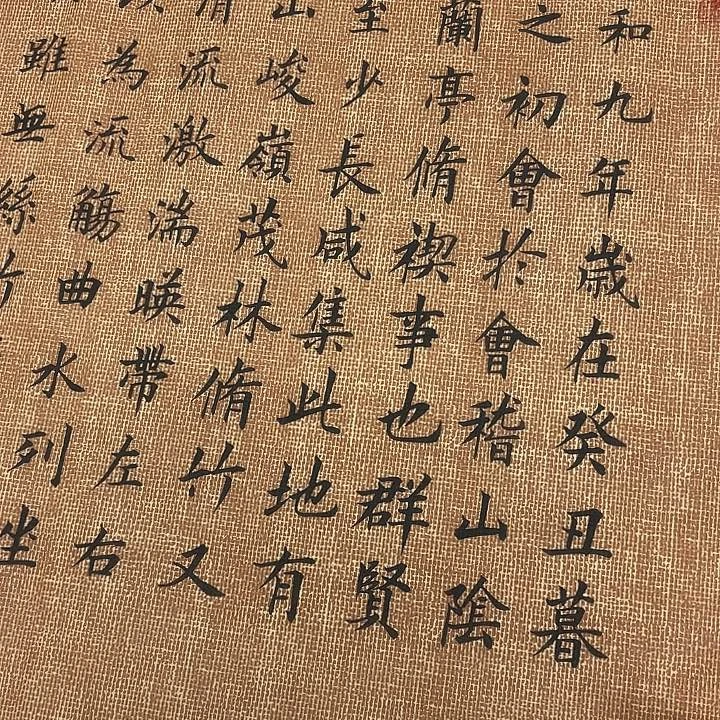 和九年歲在癸丑暮
之初會於會稽山陰
蘭亭脩禊事也群賢
至少長咸集此地有
山峻嶺茂林脩竹又
清流激湍暎帶左右
為流觴曲水列坐
雖無絲竹